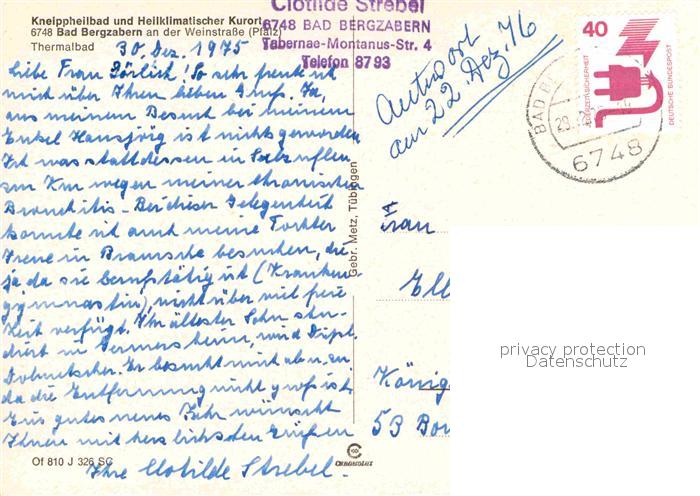 Kneippheilbad und Heilklimatischer Kurort
6748 Bad Bergzabern an der Weinstraße (Pfalz)
Thermalbad
30. Dez. 1975
Liebe Frau Zörlich! So sehr freute ich
mich über Ihren lieben Gruß. Ja,
aus meinem Besuch bei meinem
Enkel Hansjörg ist nichts geworden
Ich was stattdessen in Salzuflen
zur Kur wegen meiner chronischen
Bronchitis - Bei dieser Gelegenheit
konnte ich auch meine Tochter
Irene in Bramsche besuchen, die
ja da sie berufstätig ist (Kranken
gymnastin), nicht über viel freie
Zeit verfügt. Ihr ältester Sohn stu-
diert in Germersheim, wird Dipl.
Dolmetscher. Er besucht mich ab u. an
da die Entfernung nicht groß ist.
Ein gutes neues Jahr wünscht
Ihnen mit herzlichsten Grüßen
Ihre Clotilde Strebel.
Of 810 J 326 SC
Clotilde Strebel
6748 BAD BERGZABERN
Tabernae-Montanus-Str. 4
Telefon 8793
Antwort
am 22. Dez. 76
Gebr. Metz, Tübingen
40
DEUTSCHE BUNDESPOST
BAD B
6748
Frau
Ell
König
53 Bon
privacy protection
Datenschutz